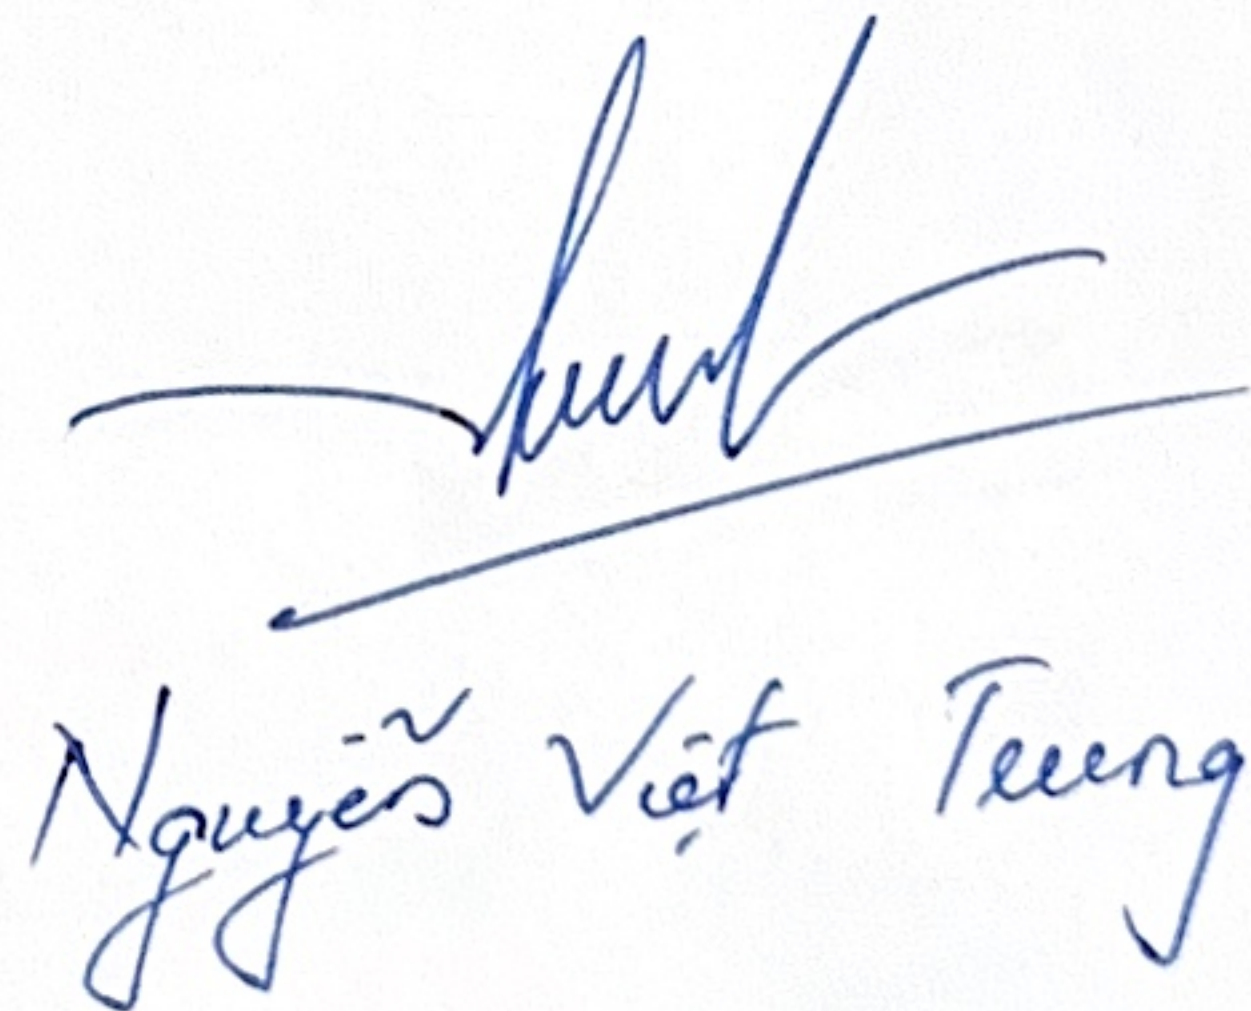 Nguyễn Việt Trung